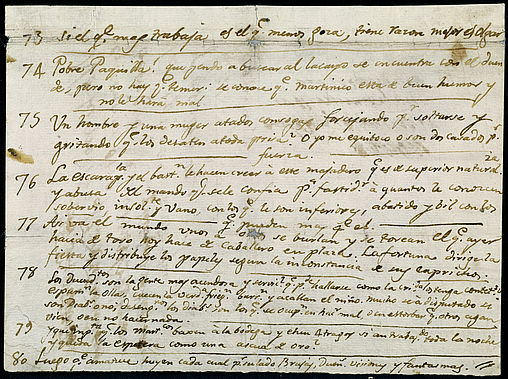 73 Si el q.e mas trabaja es el q.e menos goza, tiene razon mejor es olgar
74 Pobre Paquilla! que yendo a buscar al lacayo se encuentra con el duen
de; pero no hay q.e temer: se conoce q.e martinico esta de buen humor y
no le hara mal
75 Un hombre y una muger atados con sogas forcejando p.r soltarse y
gritando q.e los desaten a toda prisa? O yo me equivoco o son dos casados p.r
fuerza.
76 La escarap.la y el bast.n le hacen creer a este majadero q.e es de superior natural.za
y abusa del mando q.e se le confia p.a fastid.r a quantos le conocen
soberbio insol.te y vano, con los q.e le son inferiores, abatido y vil con los
77 Asi va el mundo unos a otros se burlan y se torean el q.e ayer
hacia de toro hoy hace de caballero en plaza. La fortuna dirige la
fiesta y distribuye los papeles segun la inconstancia de sus caprichos.
78 Los Duend.tos son la gente mas acendosa y servici.l q.e p.e hallarse como la cri.da los tenga content.os
espum.n la olla, cuecen la verd. frieg.n barr.n y acallan el niño. mucho se a disputado si
son Diab.os o no; los diab.s son los q.e se ocup.n en hac.r mal, o en estorbar q.e otros agan
vien, o en no hacer nada
79 Y q.e los mart.s bajen a la bodega y echen 4 tragos si an trabaj.do toda la noche
y queda la espetera como una ascua de oro?
80 Luego q.e amanece huyen cada cual p.r su lado Brujas, Duen.s visiones y fantasmas.